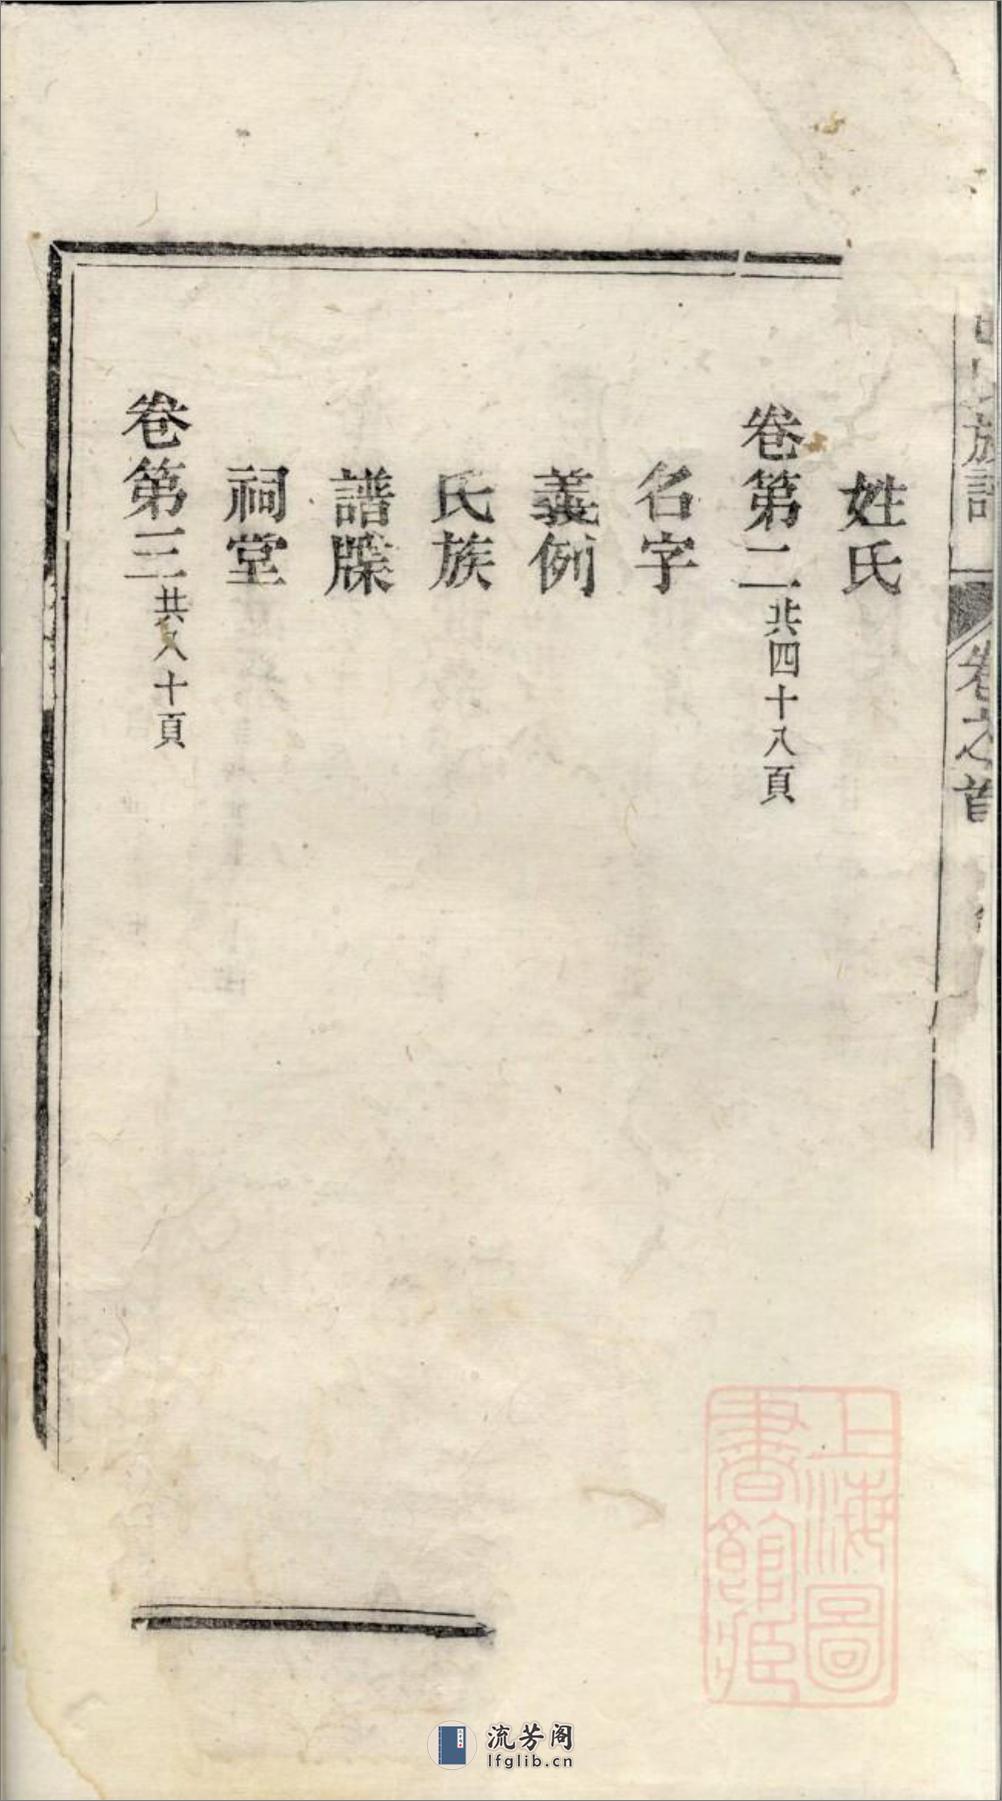 族譜
卷之首
姓氏
卷第二共四十八頁
名字
義例
氏族
譜牒
祠堂
卷第三共八十頁
上海圖
書館藏
流芳阁
lfglib.cn